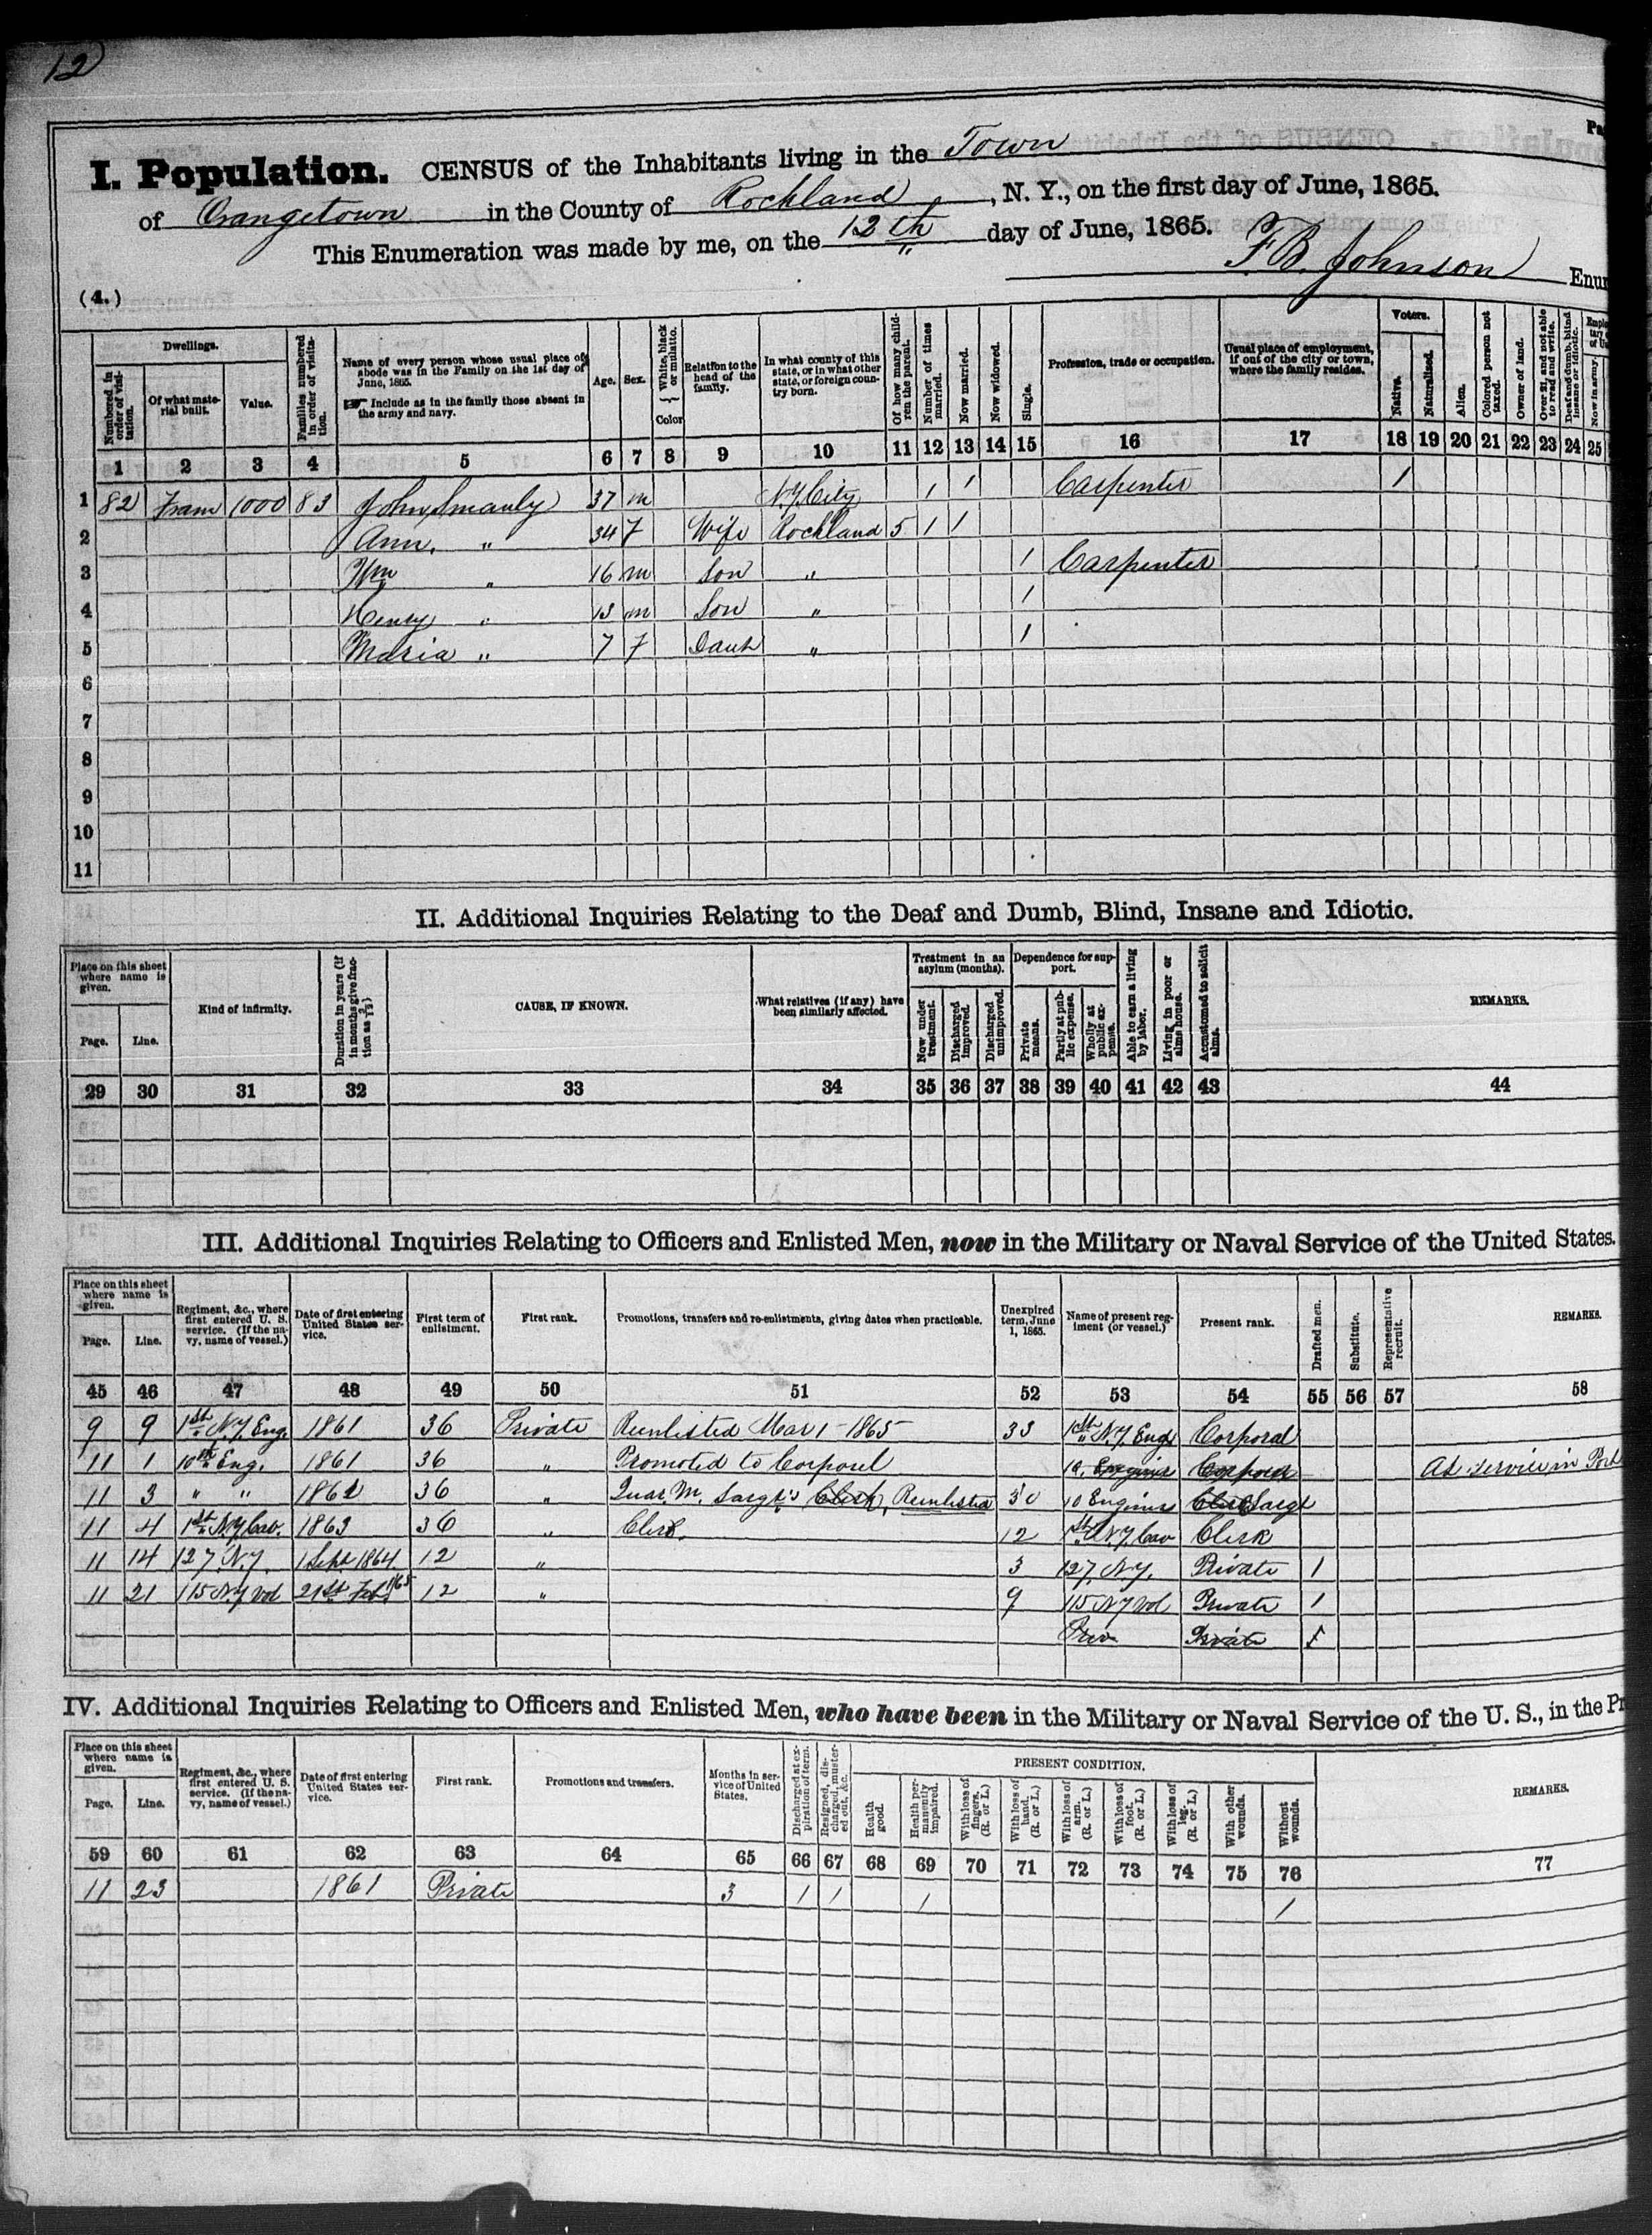 12
Pa
I. Population. CENSUS of the Inhabitants living in the Town
of Orangetown in the County of Rockland, N. Y., on the first day of June, 1865.
This Enumeration was made by me, on the 12th day of June, 1865. F. B. Johnson Enum
(4.)
Numbered in order of visitation. Dwellings. Of what material built. Value. Families numbered in order of visitation. Name of every person whose usual place of abode was in the Family on the 1st day of June, 1865. ☞ Include as in the family those absent in the army and navy. Age. Sex. White, black or mulatto. } Color Relation to the head of the family. In what county of this state, or in what other state, or foreign country born. Of how many children the parent. Number of times married. Now married. Now widowed. Single. Profession, trade or occupation. Usual place of employment, if out of the city or town, where the family resides. Voters. Native. Naturalized. Alien. Colored person not taxed. Owner of land. Over 21, and not able to read and write. Deaf and dumb, blind insane or idiotic. Now in army.
1 2 3 4 5 6 7 8 9 10 11 12 13 14 15 16 17 18 19 20 21 22 23 24 25
1 82 Fram 1000 83 John 37 m N.Y. City 1 1 Carpenter 1
2 Ann, " 34 F Wife Rockland 5 1 1
3 Wm " 16 m Son " 1 Carpenter
4 Henry " 13 m Son " 1
5 Maria " 7 F Dauh " 1
6
7
8
9
10
11
II. Additional Inquiries Relating to the Deaf and Dumb, Blind, Insane and Idiotic.
Place on this sheet where name is given. Page. Line. Kind of infirmity. Duration in years (if in months give fraction as 2/12) CAUSE, IF KNOWN. What relatives (if any) have been similarly affected. Treatment in an asylum (months). Now under treatment. Discharged improved. Discharged unimproved. Dependence for support. Private means. Partly at public expense. Wholly at public expense. Able to earn a living by labor. Living in poor or alms house. Accustomed to solicit alms. REMARKS.
29 30 31 32 33 34 35 36 37 38 39 40 41 42 43 44
III. Additional Inquiries Relating to Officers and Enlisted Men, now in the Military or Naval Service of the United States.
Place on this sheet where name is given. Page. Line. Regiment, &c., where first entered U. S. service. (If the navy, name of vessel.) Date of first entering United States service. First term of enlistment. First rank. Promotions, transfers and re-enlistments, giving dates when practicable. Unexpired term, June 1, 1865. Name of present regiment (or vessel.) Present rank. Drafted men. Substitute. Representative recruit. REMARKS.
45 46 47 48 49 50 51 52 53 54 55 56 57 58
9 9 1st N.Y. Eng. 1861 36 Private Reenlisted Mar 1 - 1865 33 1st N.Y. Eng Corporal
11 1 10th Eng. 1861 36 " Promoted to Corporal 10 Engine Corporal At service in
11 3 " " 1862 36 " Quar. M. Sargt's Clerk, Reenlisted 30 10 Engines Clerk Sargt
11 4 1st N.Y Cav. 1863 36 " Clerk. 12 1st N.Y. Cav Clerk
11 14 127 N.Y. 1 Sept 1864. 12 " 3 127, N.Y. Private 1
11 21 115 N.Y Vol 21st Feb. 1865 12 " 9 115 N.Y Vol Private 1
Priv. Private 1
IV. Additional Inquiries Relating to Officers and Enlisted Men, who have been in the Military or Naval Service of the U. S., in the Pr
Place on this sheet where name is given. Page. Line. Regiment, &c., where first entered U. S. service. (If the navy, name of vessel.) Date of first entering United States service. First rank. Promotions and transfers. Months in service of United States. Discharged at expiration of term. Resigned, discharged, mustered out, &c. PRESENT CONDITION. Health good. Health permanently impaired. With loss of fingers. (R. or L.) With loss of hand. (R. or L.) With loss of arm. (R. or L.) With loss of foot. (R. or L.) With loss of leg. (R. or L.) With other wounds. Without wounds. REMARKS.
59 60 61 62 63 64 65 66 67 68 69 70 71 72 73 74 75 76 77
11 23 1861 Private 3 1 1 1 1